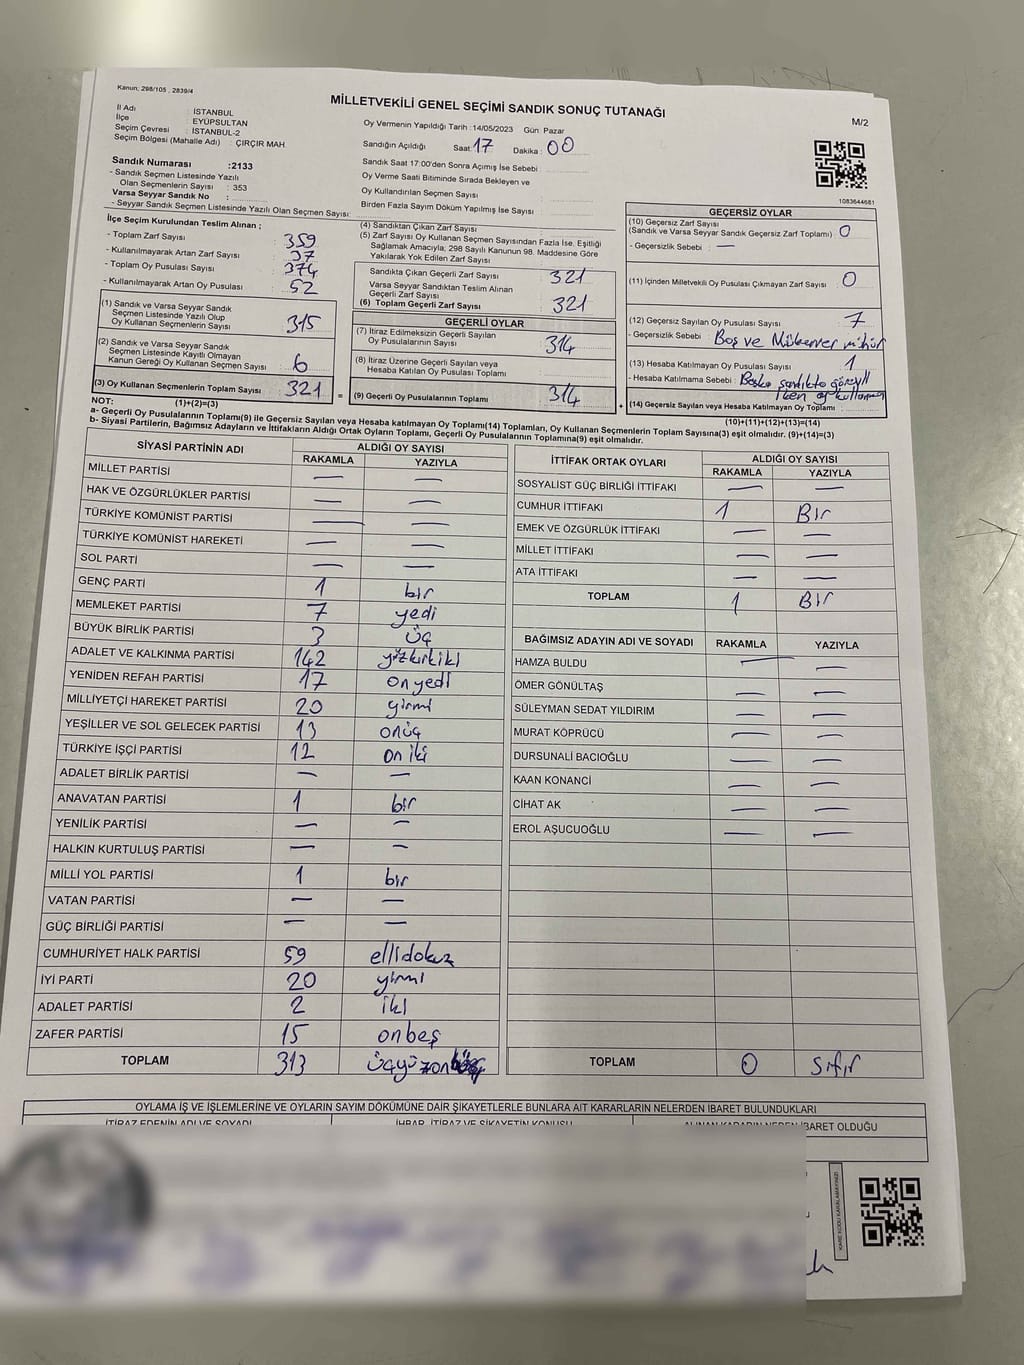 Kanun: 298/105 , 2839/4
MİLLETVEKİLİ GENEL SEÇİMİ SANDIK SONUÇ TUTANAĞI
M/2
İl Adı : İSTANBUL
İlçe : EYÜPSULTAN
Seçim Çevresi : İSTANBUL-2
Seçim Bölgesi (Mahalle Adı) : ÇIRÇIR MAH.
Oy Vermenin Yapıldığı Tarih :14/05/2023 Gün: Pazar
Sandığın Açıldığı Saat: 17 Dakika : 00
Sandık Saat 17:00'den Sonra Açımış İse Sebebi :
Oy Verme Saati Bitiminde Sırada Bekleyen ve
Oy Kullandırılan Seçmen Sayısı :
Birden Fazla Sayım Döküm Yapılmış İse Sayısı :
1083644681
Sandık Numarası :2133
- Sandık Seçmen Listesinde Yazılı
Olan Seçmenlerin Sayısı : 353
Varsa Seyyar Sandık No :
- Seyyar Sandık Seçmen Listesinde Yazılı Olan Seçmen Sayısı:
İlçe Seçim Kurulundan Teslim Alınan ;
- Toplam Zarf Sayısı : 359
- Kullanılmayarak Artan Zarf Sayısı : 37
- Toplam Oy Pusulası Sayısı : 374
- Kullanılmayarak Artan Oy Pusulası : 52
(1) Sandık ve Varsa Seyyar Sandık
Seçmen Listesinde Yazılı Olup
Oy Kullanan Seçmenlerin Sayısı : 315
(2) Sandık ve Varsa Seyyar Sandık
Seçmen Listesinde Kayıtlı Olmayan
Kanun Gereği Oy Kullanan Seçmen Sayısı : 6
(3) Oy Kullanan Seçmenlerin Toplam Sayısı : 321 =
(4) Sandıktan Çıkan Zarf Sayısı :
(5) Zarf Sayısı Oy Kullanan Seçmen Sayısından Fazla İse, Eşitliği
Sağlamak Amacıyla; 298 Sayılı Kanunun 98. Maddesine Göre
Yakılarak Yok Edilen Zarf Sayısı :
Sandıkta Çıkan Geçerli Zarf Sayısı 321
Varsa Seyyar Sandıktan Teslim Alınan
Geçerli Zarf Sayısı :
(6) Toplam Geçerli Zarf Sayısı : 321
GEÇERLİ OYLAR
(7) İtiraz Edilmeksizin Geçerli Sayılan
Oy Pusulalarının Sayısı : 314
(8) İtiraz Üzerine Geçerli Sayılan veya
Hesaba Katılan Oy Pusulası Toplamı :
(9) Geçerli Oy Pusulalarının Toplamı 314 +
GEÇERSİZ OYLAR
(10) Geçersiz Zarf Sayısı :
(Sandık ve Varsa Seyyar Sandık Geçersiz Zarf Toplamı) : 0
- Geçersizlik Sebebi : —
(11) İçinden Milletvekili Oy Pusulası Çıkmayan Zarf Sayısı : 0
(12) Geçersiz Sayılan Oy Pusulası Sayısı : 7
- Geçersizlik Sebebi : Boş ve Mükerrer mühür
(13) Hesaba Katılmayan Oy Pusulası Sayısı : 1
- Hesaba Katılmama Sebebi : Başka sandıkta görevli
iken oy kullanma
(14) Geçersiz Sayılan veya Hesaba Katılmayan Oy Toplamı :
NOT: (1)+(2)=(3)
(10)+(11)+(12)+(13)=(14)
a- Geçerli Oy Pusulalarının Toplamı(9) ile Geçersiz Sayılan veya Hesaba katılmayan Oy Toplamı(14) Toplamları, Oy Kullanan Seçmenlerin Toplam Sayısına(3) eşit olmalıdır. (9)+(14)=(3)
b- Siyasi Partilerin, Bağımsız Adayların ve İttifakların Aldığı Ortak Oyların Toplamı, Geçerli Oy Pusulalarının Toplamına(9) eşit olmalıdır.
SİYASİ PARTİNİN ADI ALDIĞI OY SAYISI
RAKAMLA YAZIYLA
MİLLET PARTİSİ — —
HAK VE ÖZGÜRLÜKLER PARTİSİ — —
TÜRKİYE KOMÜNİST PARTİSİ — —
TÜRKİYE KOMÜNİST HAREKETİ — —
SOL PARTİ — —
GENÇ PARTİ 1 bir
MEMLEKET PARTİSİ 7 yedi
BÜYÜK BİRLİK PARTİSİ 3 üç
ADALET VE KALKINMA PARTİSİ 142 yüzkırkiki
YENİDEN REFAH PARTİSİ 17 onyedi
MİLLİYETÇİ HAREKET PARTİSİ 20 yirmi
YEŞİLLER VE SOL GELECEK PARTİSİ 13 onüç
TÜRKİYE İŞÇİ PARTİSİ 12 on iki
ADALET BİRLİK PARTİSİ — —
ANAVATAN PARTİSİ 1 bir
YENİLİK PARTİSİ — —
HALKIN KURTULUŞ PARTİSİ — —
MİLLİ YOL PARTİSİ 1 bir
VATAN PARTİSİ — —
GÜÇ BİRLİĞİ PARTİSİ — —
CUMHURİYET HALK PARTİSİ 59 ellidokuz
İYİ PARTİ 20 yirmi
ADALET PARTİSİ 2 iki
ZAFER PARTİSİ 15 onbeş
TOPLAM 313
İTTİFAK ORTAK OYLARI ALDIĞI OY SAYISI
RAKAMLA YAZIYLA
SOSYALİST GÜÇ BİRLİĞİ İTTİFAKI — —
CUMHUR İTTİFAKI 1 Bir
EMEK VE ÖZGÜRLÜK İTTİFAKI — —
MİLLET İTTİFAKI — —
ATA İTTİFAKI — —
TOPLAM 1 Bir
BAĞIMSIZ ADAYIN ADI VE SOYADI RAKAMLA YAZIYLA
HAMZA BULDU — —
ÖMER GÖNÜLTAŞ — —
SÜLEYMAN SEDAT YILDIRIM — —
MURAT KÖPRÜCÜ — —
DURSUNALİ BACIOĞLU — —
KAAN KONANCİ — —
CİHAT AK — —
EROL AŞUCUOĞLU — —
TOPLAM 0 Sıfır
OYLAMA İŞ VE İŞLEMLERİNE VE OYLARIN SAYIM DÖKÜMÜNE DAİR ŞİKAYETLERLE BUNLARA AİT KARARLARIN NELERDEN İBARET BULUNDUKLARI
İTİRAZ EDENİN ADI VE SOYADI İHBAR, İTİRAZ VE ŞİKAYETİN KONUSU ALINAN KARARIN NEDEN İBARET OLDUĞU